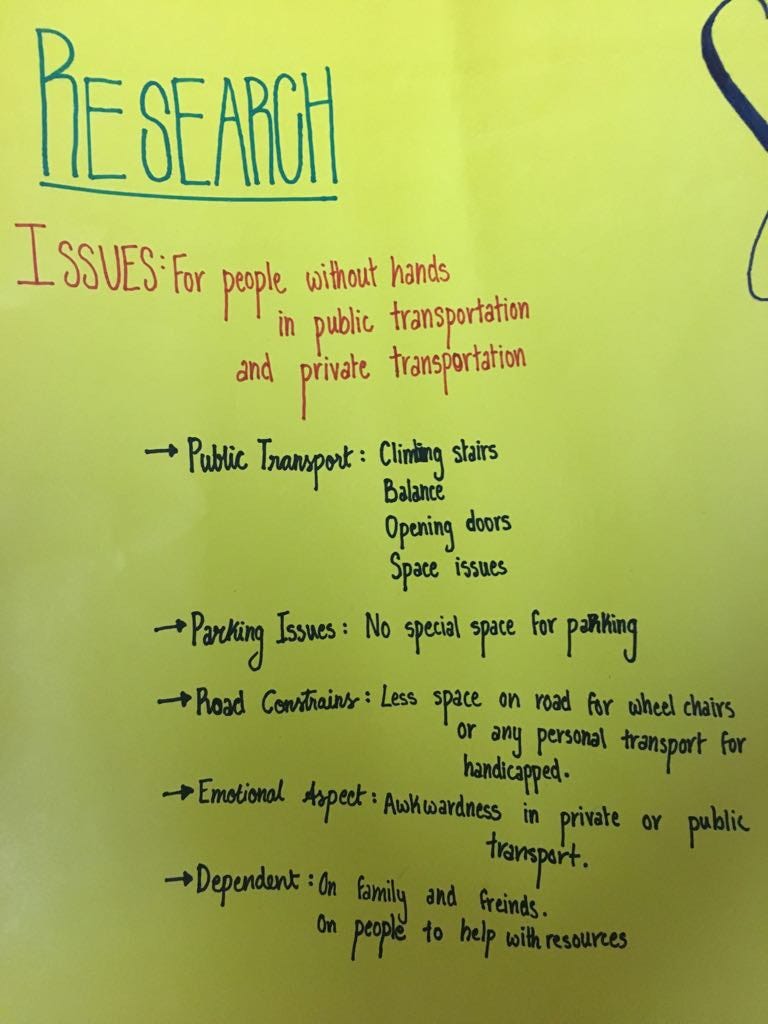 RESEARCH
ISSUES: For people without hands
in public transportation
and private transportation
→ Public Transport: Climbing stairs
Balance
Opening doors
Space issues
→ Parking Issues: No special space for parking
→ Road Constrains: Less space on road for wheel chairs
or any personal transport for
handicapped.
→ Emotional Aspect: Awkwardness in private or public
transport.
→ Dependent: On family and freinds.
On people to help with resources